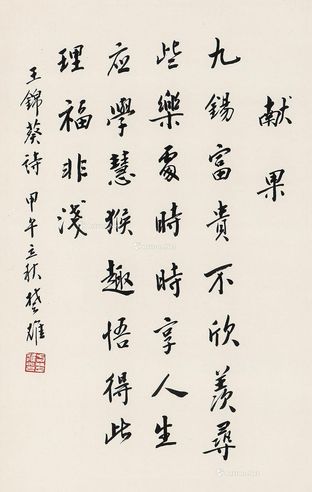 献果
九錫富貴不欣羨尋
些樂霱時時享人生
应學慧猴趣悟得此
理福非淺
王錦葵诗 甲午立秋 楚雄